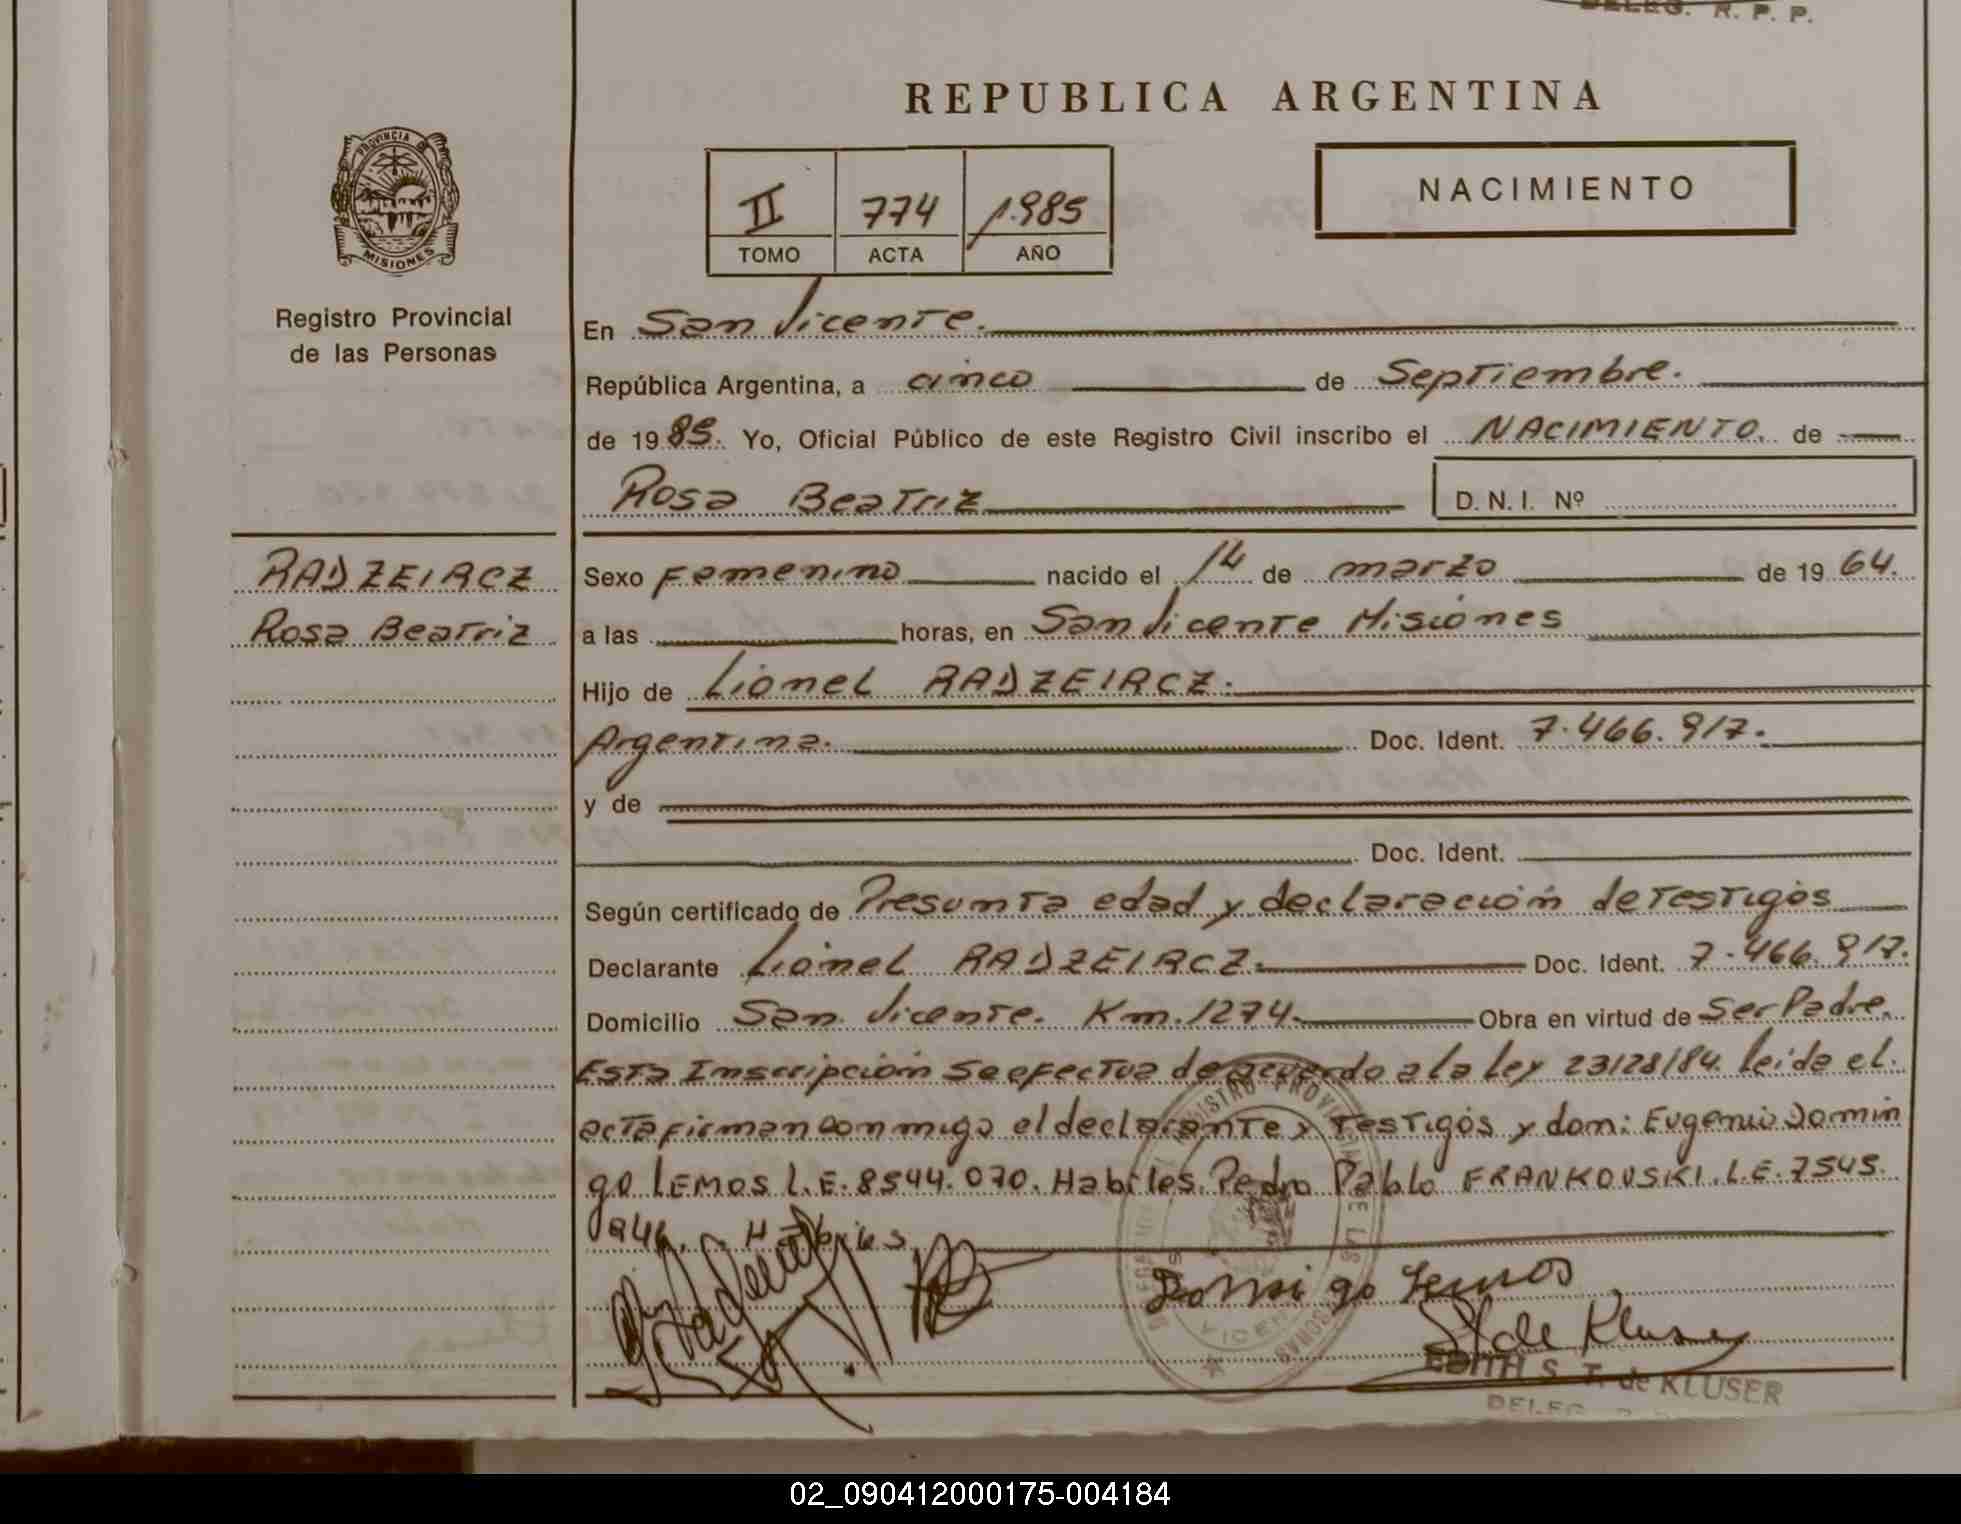 DELEG. R. P. P.
REPUBLICA ARGENTINA
PROVINCIA DE
MISIONES
II 774 1.985
TOMO ACTA AÑO
NACIMIENTO
Registro Provincial
de las Personas
En San Vicente.
República Argentina, a cinco de Septiembre.
de 1985. Yo, Oficial Público de este Registro Civil inscribo el NACIMIENTO. de
Rosa Beatriz D. N. I. Nº
RADZEIRCZ
Rosa Beatriz
Sexo Femenino nacido el 14 de marzo de 1964.
a las horas, en San Vicente Misiones
Hijo de Lionel RADZEIRCZ.
Argentina. Doc. Ident. 7.466.917.
y de
Doc. Ident.
Según certificado de Presunta edad y declaración de Testigos
Declarante Lionel RADZEIRCZ. Doc. Ident. 7.466.917.
Domicilio San Vicente. Km. 1274. Obra en virtud de Ser Padre.
Esta Inscripción se efectua de acuerdo a la Ley 23128/84. leida el
acta firman conmigo el declarante y Testigos y don: Eugenio Domin
go LEMOS L.E. 8544.070. Habiles. Pedro Pablo FRANKOVSKI. L.E. 7545.
946. Habiles
Domingo Lemos
S T de Kluser
EDITH S. T. de KLUSER
DELEG.
02_090412000175-004184